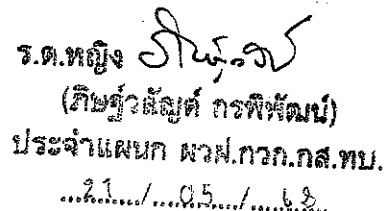 ร.ต.หญิง
(ภิษฐ์วลัญค์ กรพิพัฒน์)
ประจำแผนก ผวฝ.กวก.กส.ทบ.
21 / 05 / 68